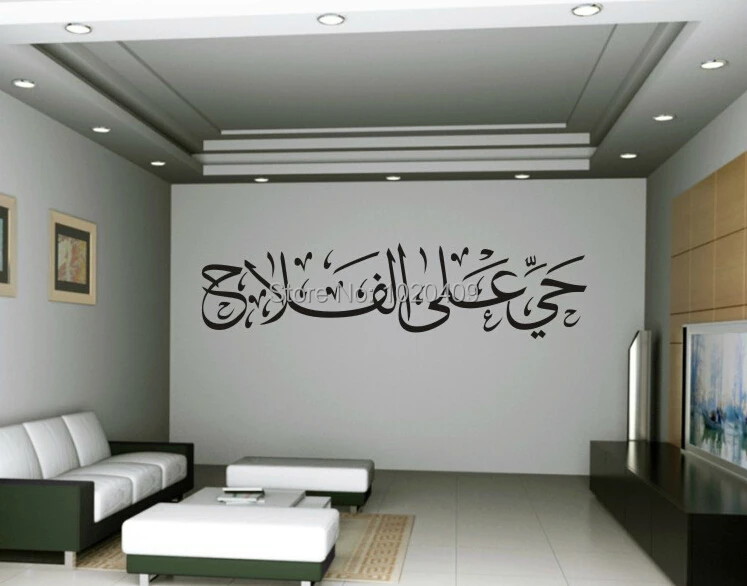 حَيِّ عَلَى الفَلَاح
Store No: 1020409